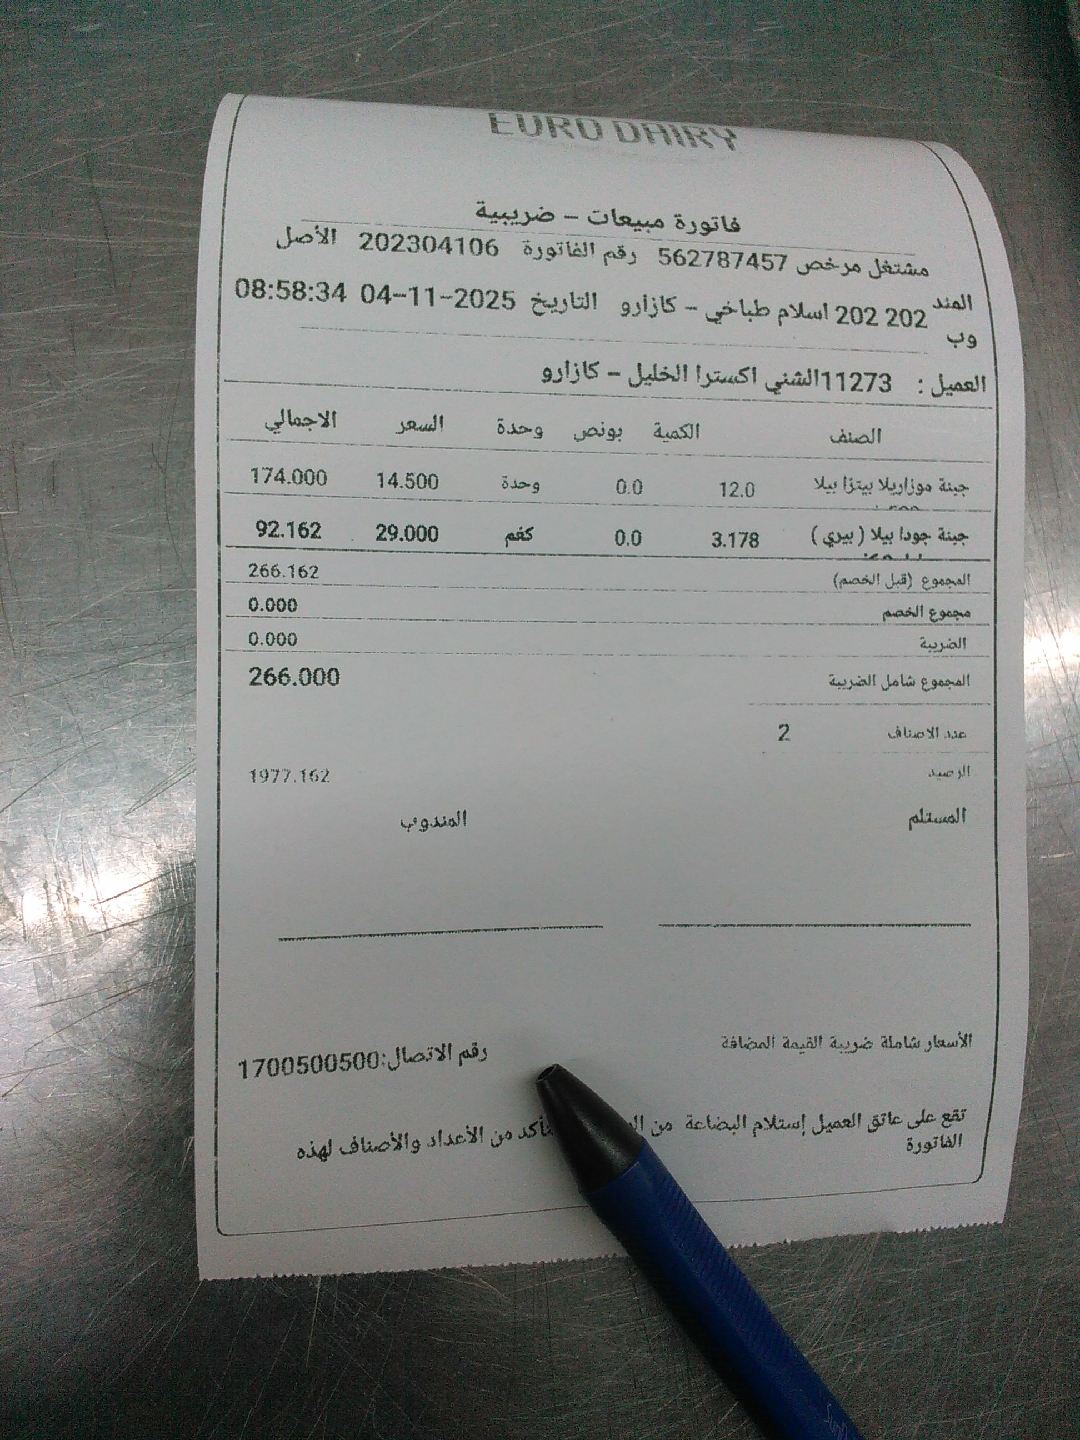 EURO DAIRY
فاتورة مبيعات - ضريبية
مشتغل مرخص 562787457 رقم الفاتورة 202304106 الأصل
المندوب 202 202 اسلام طباخي - كازارو التاريخ 04-11-2025 08:58:34
العميل : 11273الشني اكسترا الخليل - كازارو
الصنف الكمية بونص وحدة السعر الاجمالي
جبنة موزاريلا بيتزا بيلا 12.0 0.0 وحدة 14.500 174.000
جبنة جودا بيلا ( بيري ) 3.178 0.0 كغم 29.000 92.162
المجموع (قبل الخصم) 266.162
مجموع الخصم 0.000
الضريبة 0.000
المجموع شامل الضريبة 266.000
عدد الاصناف 2
الرصيد 1977.162
المستلم المندوب
الأسعار شاملة ضريبة القيمة المضافة رقم الاتصال:1700500500
تقع على عاتق العميل إستلام البضاعة من من الأعداد والأصناف لهذه
الفاتورة